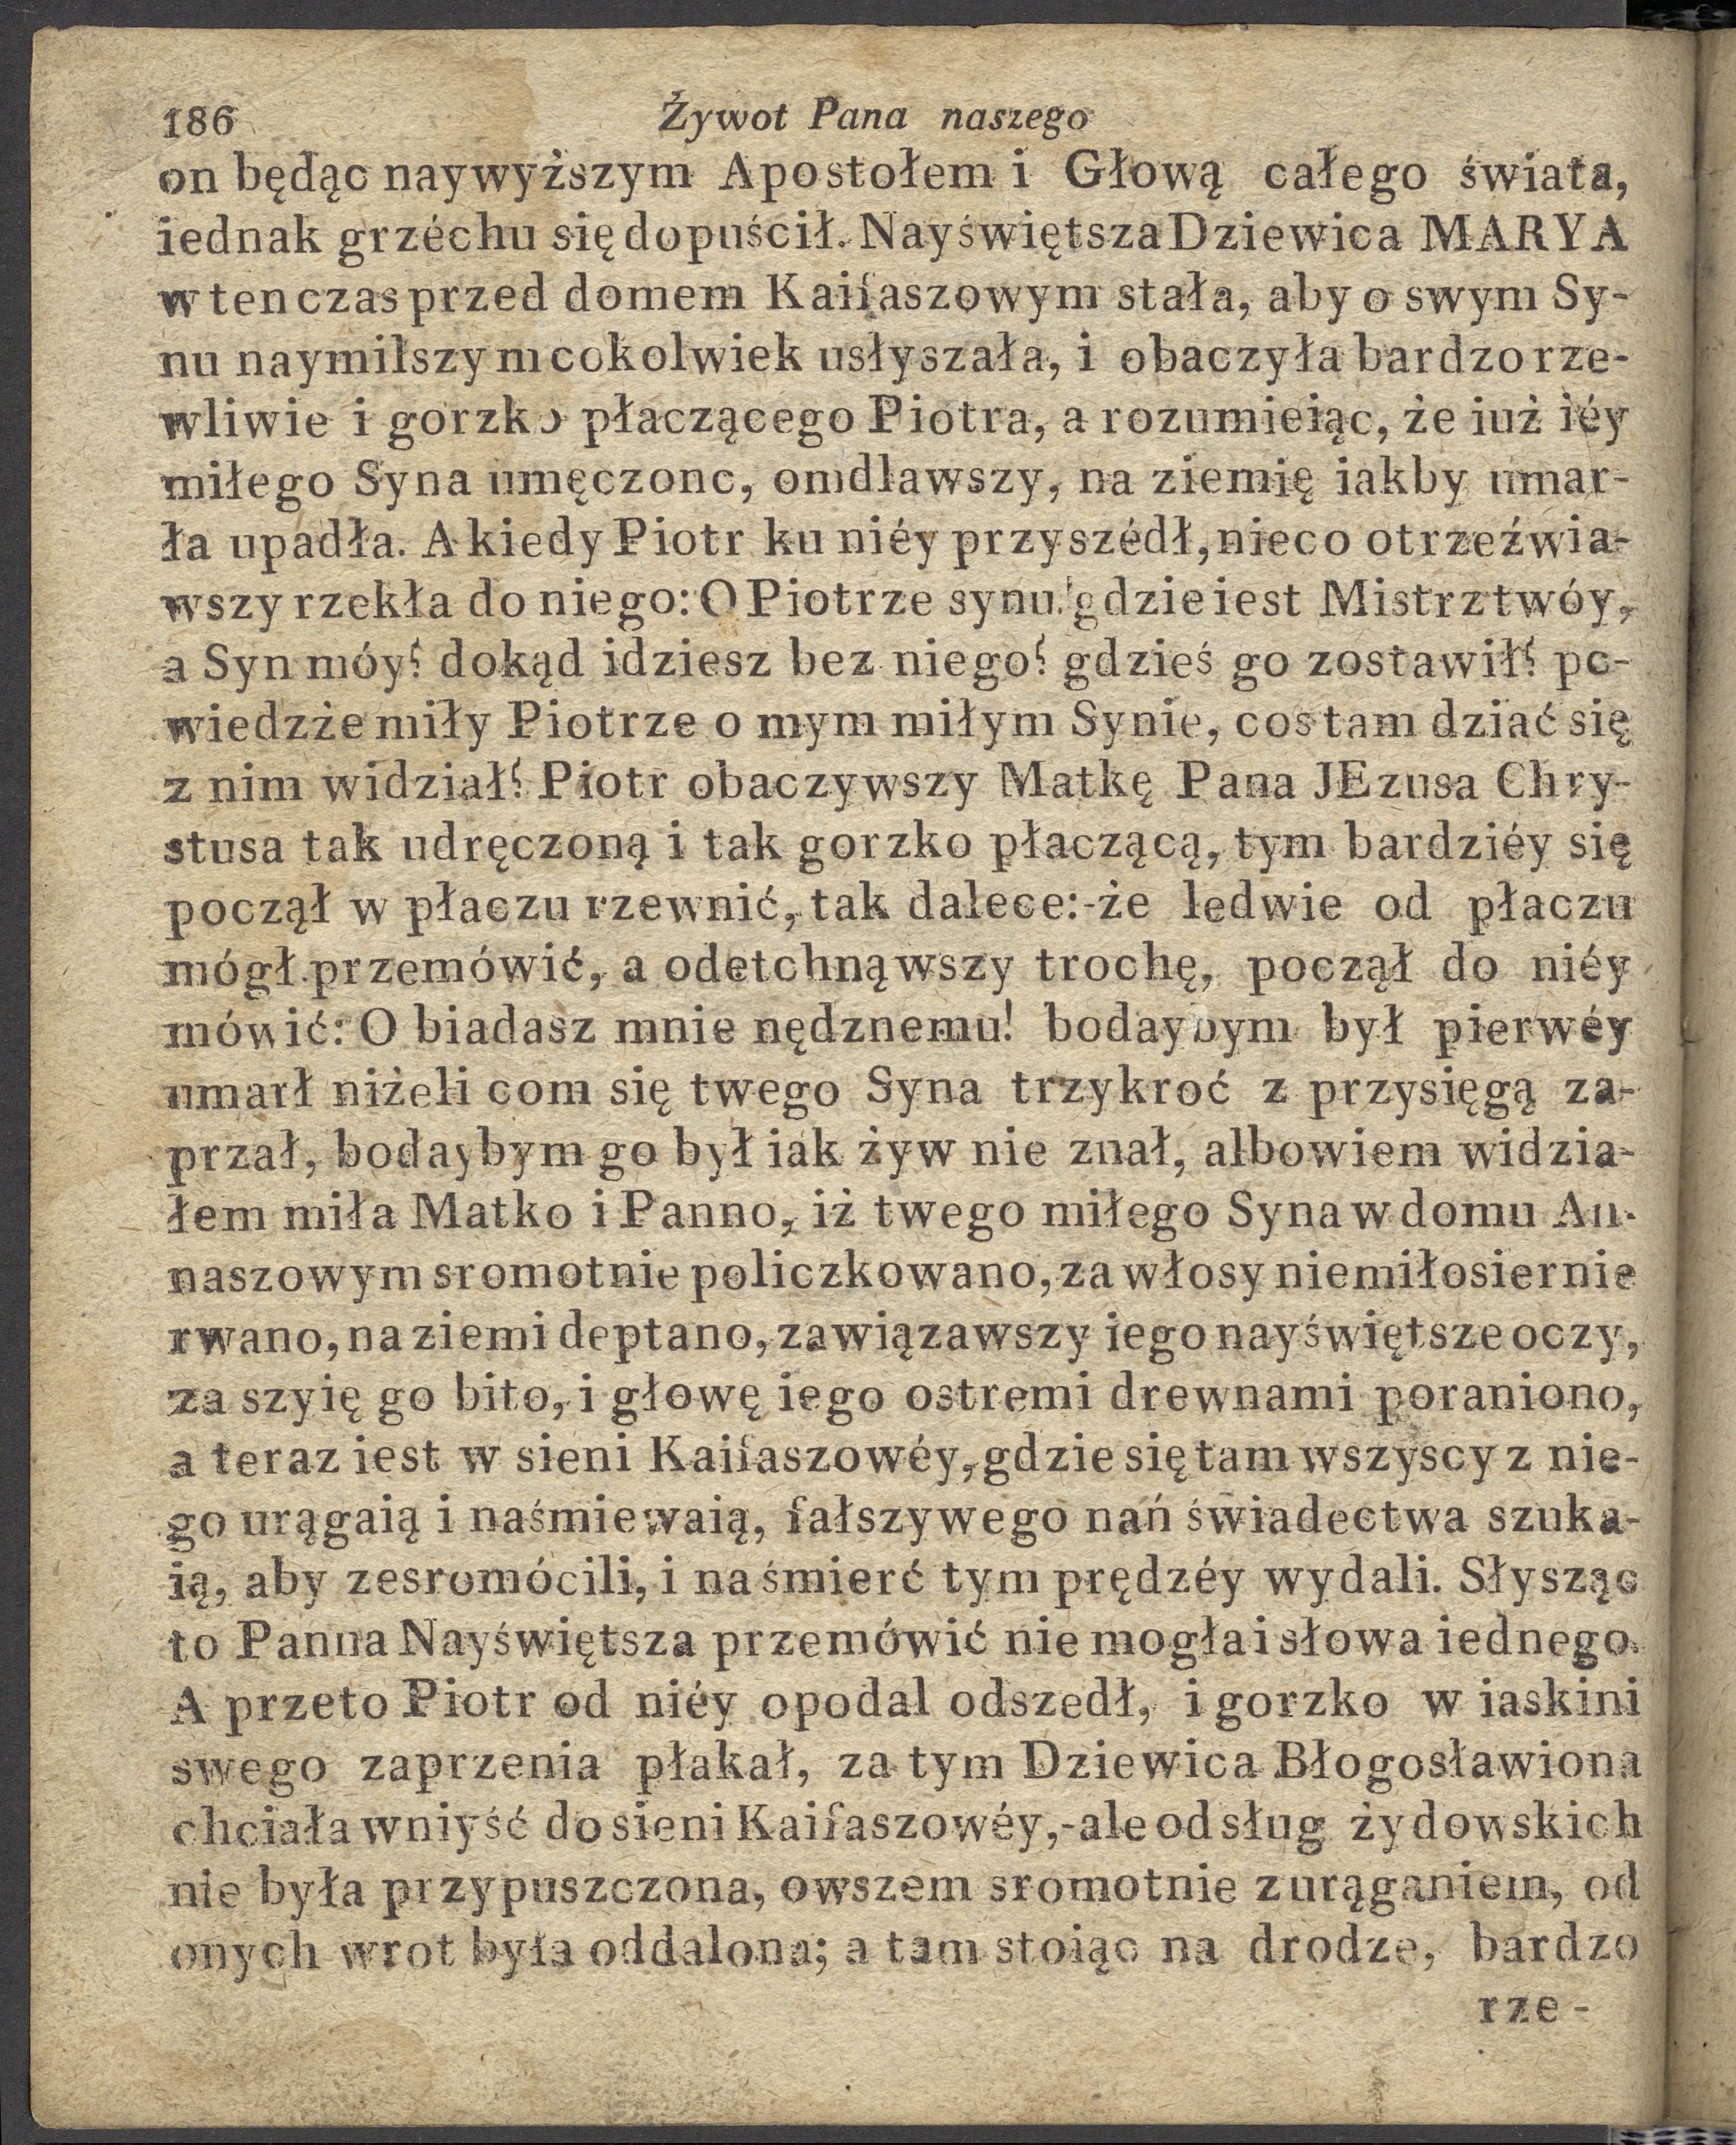 186 Żywot Pana naszego
on będąc naywyższym Apostołem i Głową całego świata,
iednak grzéchu się dopuścił. Nayświętsza Dziewica MARYA
w ten czas przed domem Kaifaszowym stała, aby o swym Sy-
nu naymilszym cokolwiek usłyszała, i obaczyła bardzo rze-
wliwie i gorzko płaczącego Piotra, a rozumieiąc, że iuż iéy
miłego Syna umęczono, omdlawszy, na ziemię iakby umar-
ła upadła. A kiedy Piotr ku niéy przyszédł, nieco otrzeźwia-
wszy rzekła do niego: O Piotrze synu! gdzie iest Mistrz twóy,
a Syn móy? dokąd idziesz bez niego? gdzieś go zostawił? po-
wiedzże miły Piotrze o mym miłym Synie, cos tam dziać się
z nim widział? Piotr obaczywszy Matkę Pana JEzusa Chry-
stusa tak udręczoną i tak gorzko płaczącą, tym bardziéy się
począł w płaczu rzewnić, tak dalece:-że ledwie od płaczu
mógł przemówić, a odetchnąwszy trochę, począł do niéy
mówić: O biadasz mnie nędznemu! bodaybym był pierwéy
umarł niżeli com się twego Syna trzykroć z przysięgą za-
przał, bodaybym go był iak żyw nie znał, albowiem widzia-
łem miła Matko i Panno, iż twego miłego Syna w domu An-
naszowym sromotnie policzkowano, za włosy niemiłosiernie
rwano, na ziemi deptano, zawiązawszy iego nayświętsze oczy,
za szyię go bito, i głowę iego ostremi drewnami poraniono,
a teraz iest w sieni Kaifaszowéy, gdzie się tam wszyscy z nie-
go urągaią i naśmiewaią, fałszywego nań świadectwa szuka-
ią, aby zesromócili, i na śmierć tym prędzéy wydali. Słysząc
to Panna Nayświętsza przemówić nie mogła i słowa iednego.
A przeto Piotr od niéy opodal odszedł, i gorzko w iaskini
swego zaprzenia płakał, za tym Dziewica Błogosławiona
chciała wniyść do sieni Kaifaszowéy,-ale od sług żydowskich
nie była przypuszczona, owszem sromotnie z urąganiem, od
onych wrot była oddalona; a tam stoiąc na drodze, bardzo
rze-